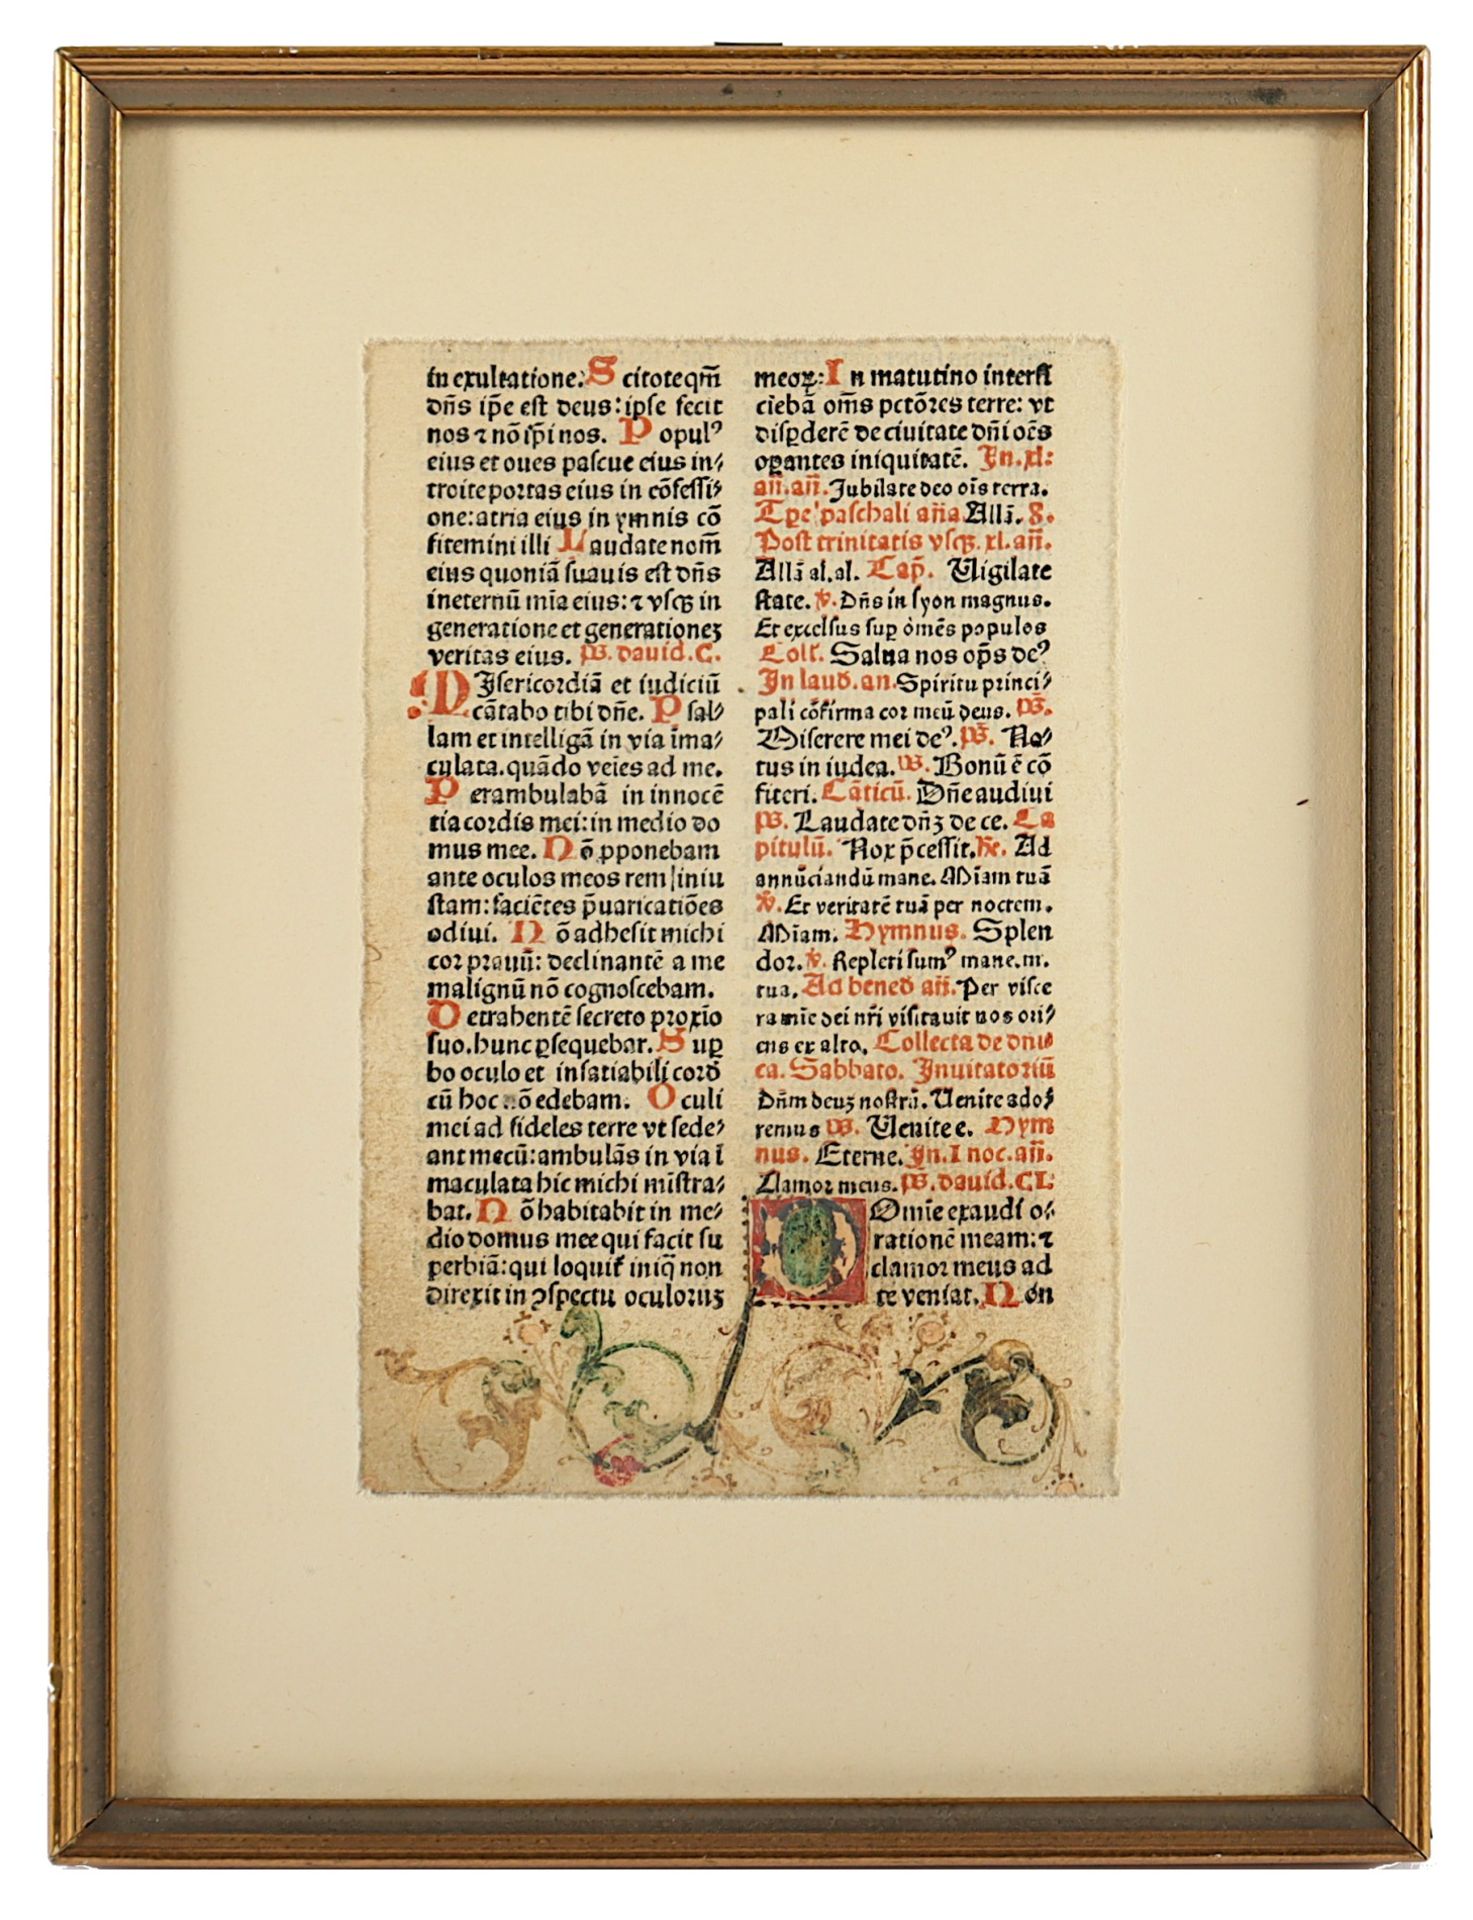 in exultatione: Scitote qm̄
dn̄s ip̄e est deus: ipse fecit
nos ⁊ nō ip̄i nos. Populꝰ
eius et oues pascue eius in⸗
troite portas eius in cōfessi⸗
one: atria eius in ymnis cō
fitemini illi Laudate nom̄
eius quoniā suauis est dn̄s
in eternū mīa eius: ⁊ vsqꝫ in
generatione et generationeꝫ
veritas eius. Ps. dauid. C.
Misericordiā et iudiciū
cātabo tibi dn̄e. Psal⸗
lam et intelligā in via īma⸗
culata. quādo veīes ad me.
Perambulabā in innocē
tia cordis mei: in medio do
mus mee. Nō ꝓponebam
ante oculos meos rem iniu
stam: faciētes p̄uaricatiōes
odiui. Nō adhesit michi
cor prauū: declinantē a me
malignū nō cognoscebam.
Detrahentē secreto proxīo
suo. hunc ꝑsequebar. Suꝑ
bo oculo et insatiabili cord̄
cū hoc nō edebam. Oculi
mei ad fideles terre vt sede⸗
ant mecū: ambulās in via ī
maculata hic michi mīstra⸗
bat. Nō habitabit in me⸗
dio domus mee qui facit su
perbiā: qui loquit᷑ iniq̄ non
direxit in ꝯspectu oculoruꝫ
meoꝝ: In matutino interfi
ciebā om̄s pctōres terre: vt
disꝑderē de ciuitate dn̄i oēs
oꝑantes iniquitatē. In. xl:
an̄. an̄. Jubilate deo oīs terra.
Tꝑe paschali an̄a. All̄a. 8.
Post trinitatis vsqꝫ. xl. an̄.
All̄a al. al. Cap̄. Uigilate
state. ℣. Dn̄s in syon magnus.
Et excelsus suꝑ om̄es populos
Coll. Salua nos op̄s deꝰ
In laud. an. Spiritu princi⸗
pali cōfirma cor meū deus. Ps.
Miserere mei deꝰ. Ps. Na⸗
tus in iudea. Ps. Bonū ē cō
fiteri. Cāticū. Dn̄e audiui
Ps. Laudate dn̄ꝫ de ce. Ca
pitulū. Nox p̄cessit. ℟. Ad
annūciandū mane. Mīam tuā
℣. Et veritatē tuā per noctem.
Mīam. Hymnus. Splen
dor. ℣. Repleti sumꝰ mane. m.
tua. Ad bened̄ an̄. Per visce
ra mīe dei nr̄i visitauit nos ori⸗
ens ex alto. Collecta de dnī
ca. Sabbato. Inuitatoriū
Dn̄m deuꝫ nostrū. Uenite ado⸗
remus Ps. Uenite e. Hym
nus. Eterne. In. I noc. an̄.
Clamor meus. Ps. dauid. CI.
Domīe exaudi o⸗
rationē meam: ⁊
clamor meus ad
te veniat. Non